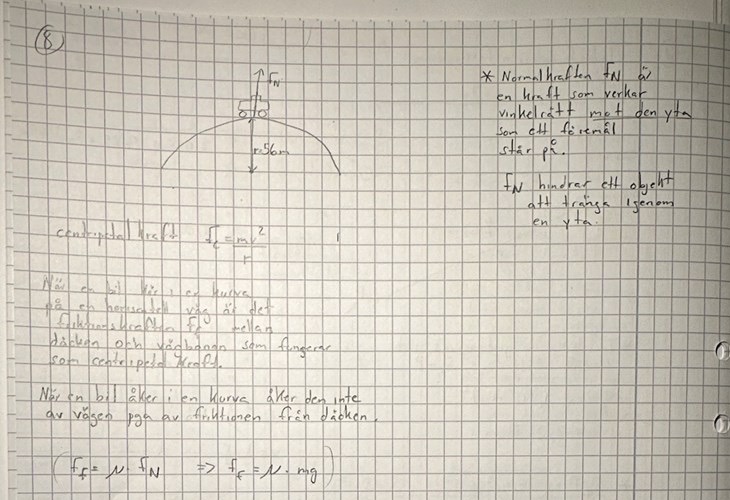 8
F_N
r=56m
centripetal kraft F_c = mv²/r
När en bil kör i en kurva
på en horisontell väg är det
friktionskraften F_f mellan
däcken och vägbanan som fungerar
som centripetal kraft.
När en bil åker i en kurva åker den inte
av vägen pga av friktionen från däcken.
(F_f = μ · F_N => F_f = μ · mg)
* Normalkraften F_N är
en kraft som verkar
vinkelrätt mot den yta
som ett föremål
står på.
F_N hindrar ett objekt
att tränga igenom
en yta.